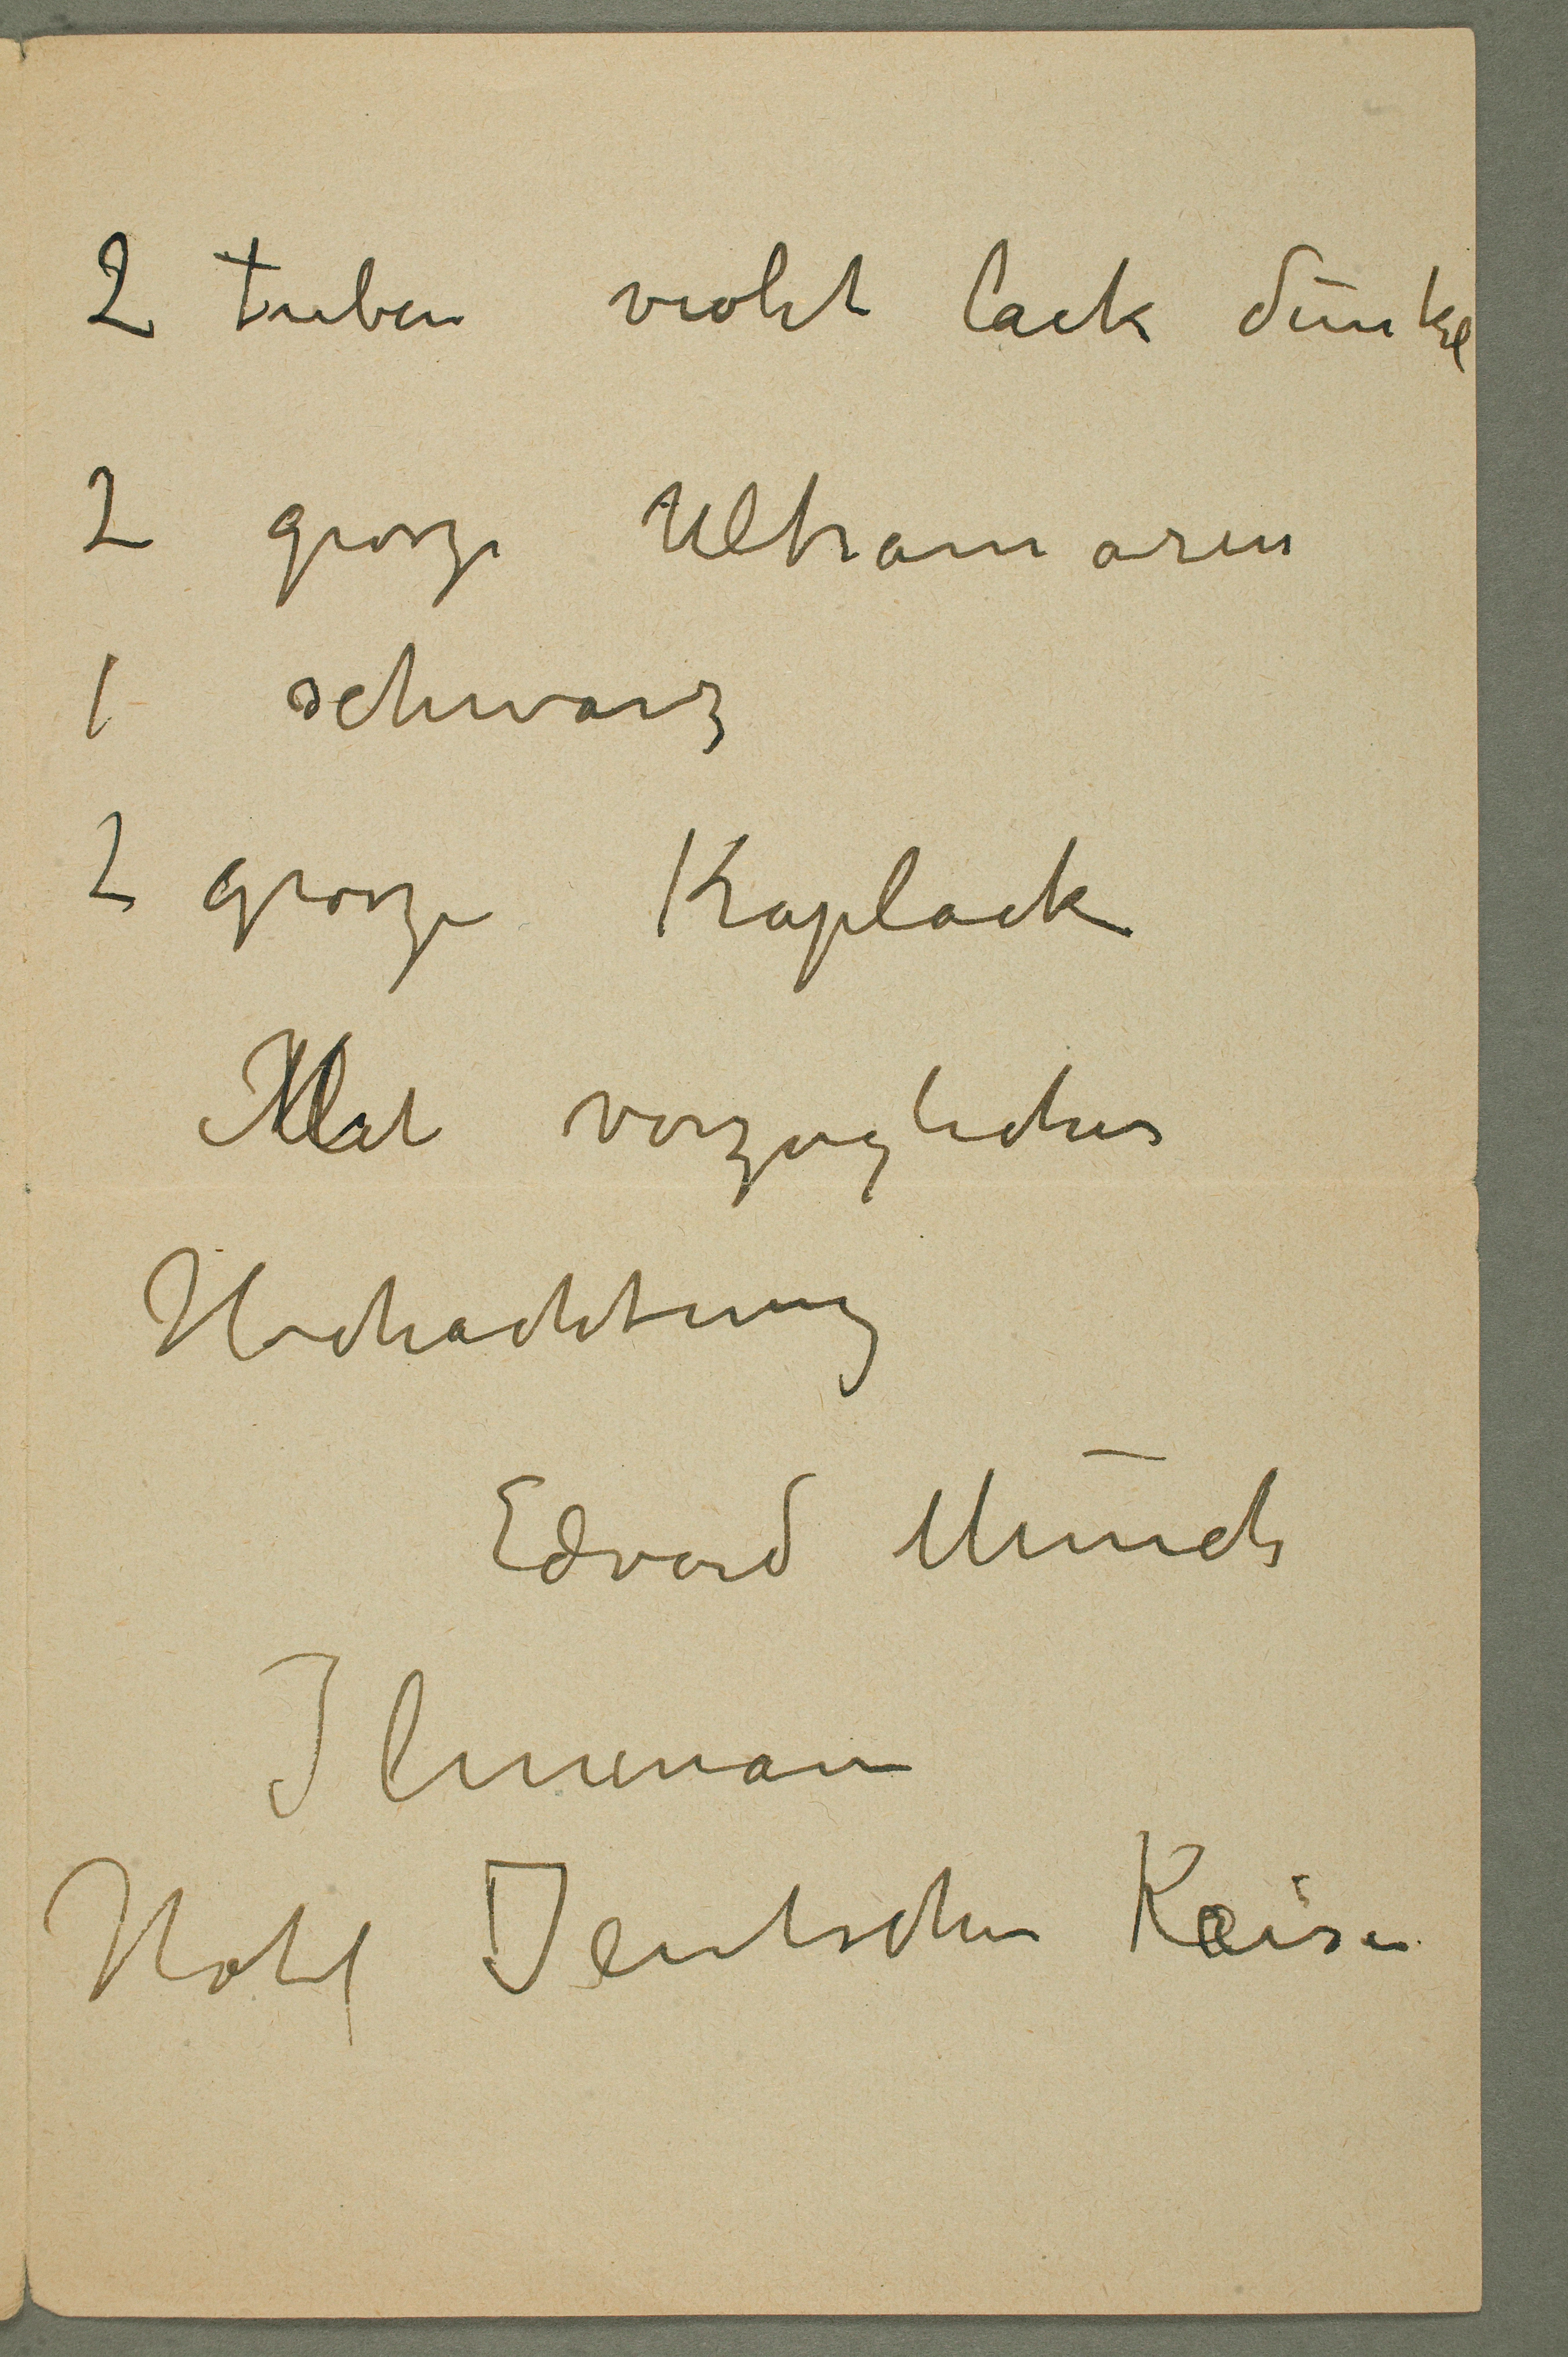 2 tuben violet lack dunkel
2 grosze Ultramaren
1 schwarz
2 grosze Kraplack
Mit vorzuglicher
Hochachtung
Edvard Munch
Ilmenau
Hotel Deutscher Kaiser